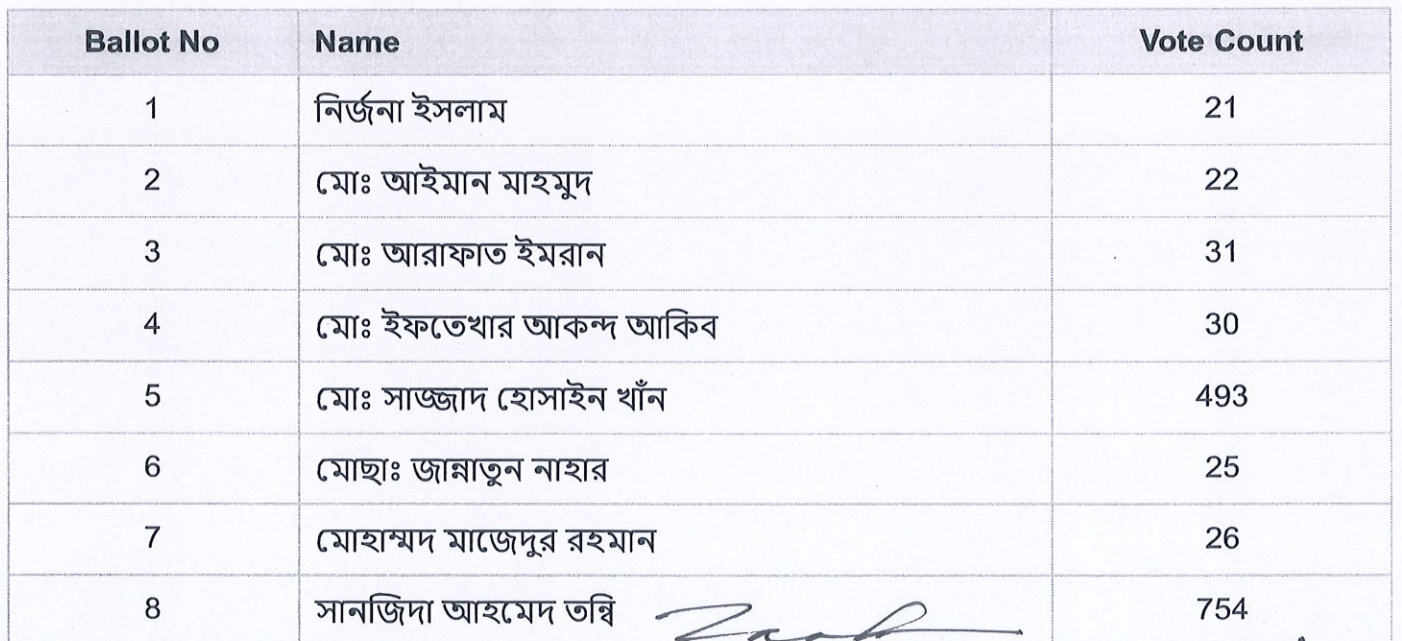 Ballot No Name Vote Count
1 নির্জনা ইসলাম 21
2 মোঃ আইমান মাহমুদ 22
3 মোঃ আরাফাত ইমরান 31
4 মোঃ ইফতেখার আকন্দ আকিব 30
5 মোঃ সাজ্জাদ হোসাইন খাঁন 493
6 মোছাঃ জান্নাতুন নাহার 25
7 মোহাম্মদ মাজেদুর রহমান 26
8 সানজিদা আহমেদ তন্বি 754